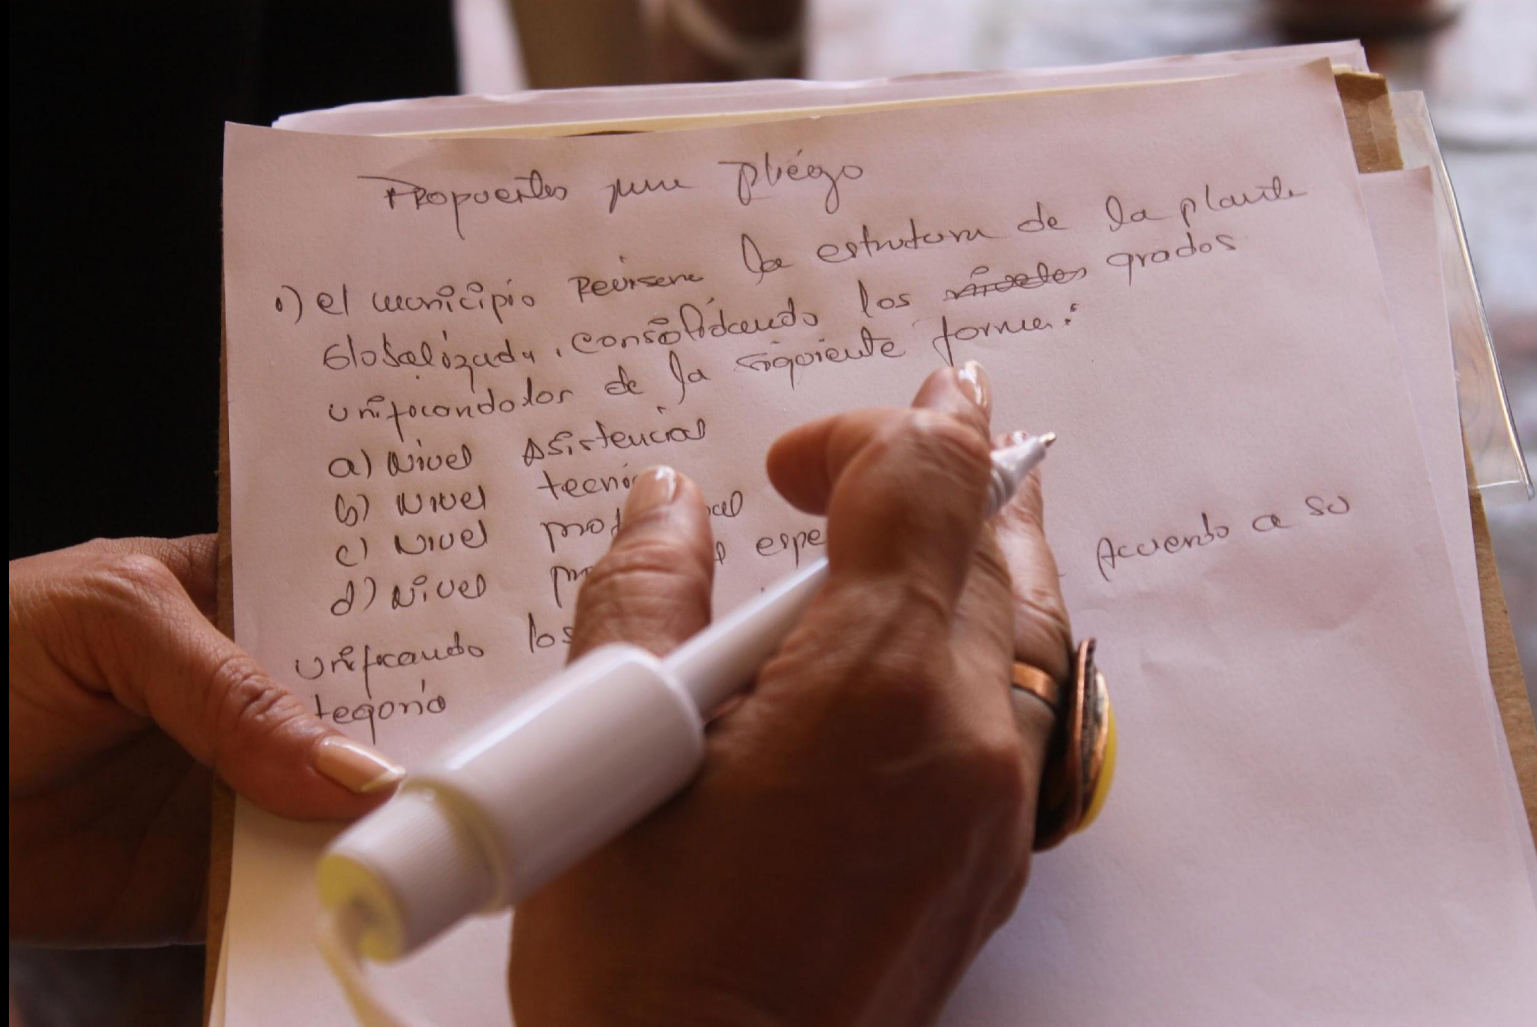 Propuestas para pliégo
1) el municipio Revisara la estrutura de la planta
Globalizada, consolidando los niveles grados
unificandolos de la siguiente forma:
a) Nivel Asistencial
b) Nivel
c) Nivel
d) Nivel
unificando los Acuerdo a su
tegoria